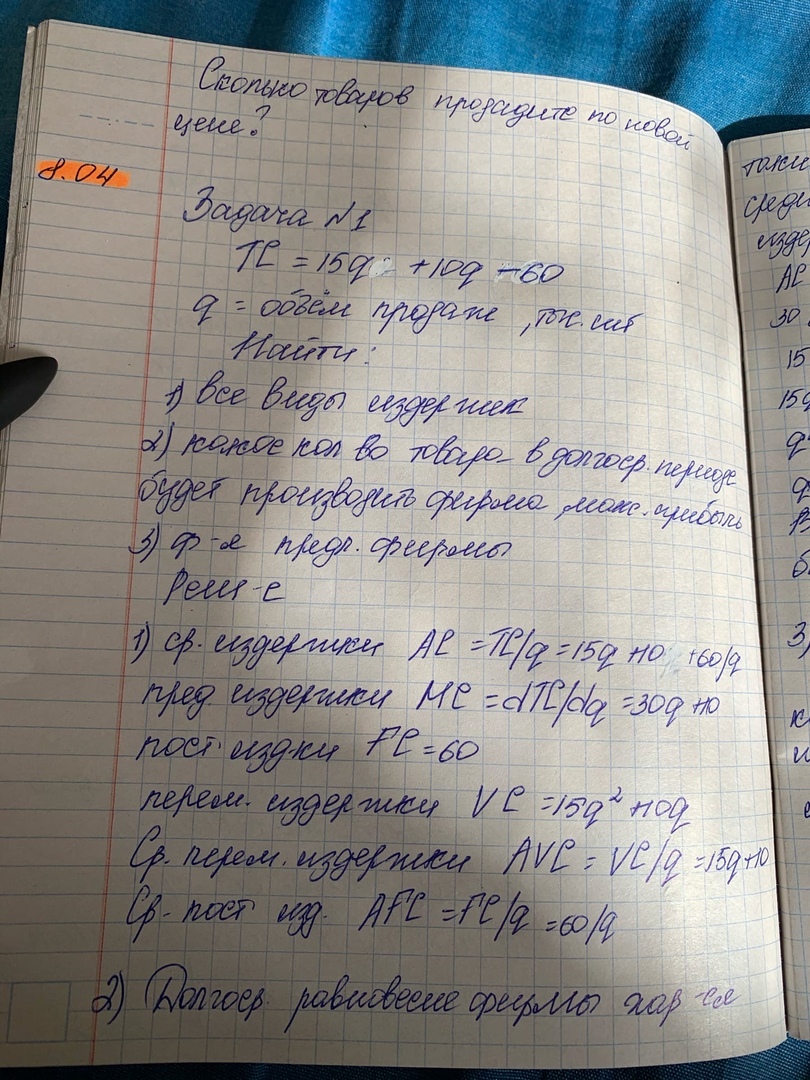 Сколько товаров продадите по новой
цене?
8.04
Задача №1
TC = 15q +10q +60
q = объём продаж, тыс. шт
Найти:
1) все виды издержек
2) какое кол во товара в долгоср. периоде
будет производить фирма, макс. прибыль
3) ф-я предл. фирмы
Реш-е
1) ср. издержки AC = TC/q = 15q +10 +60/q
пред. издержки MC = dTC/dq = 30q +10
пост. издки FC = 60
перем. издержки VC = 15q² +10q
Ср. перем. издержки AVC = VC/q = 15q+10
Ср. пост изд. AFC = FC/q = 60/q
2) Долгоср. равновесие фирмы хар-ся
таки
средн
издер
AC
30
15
15q
q